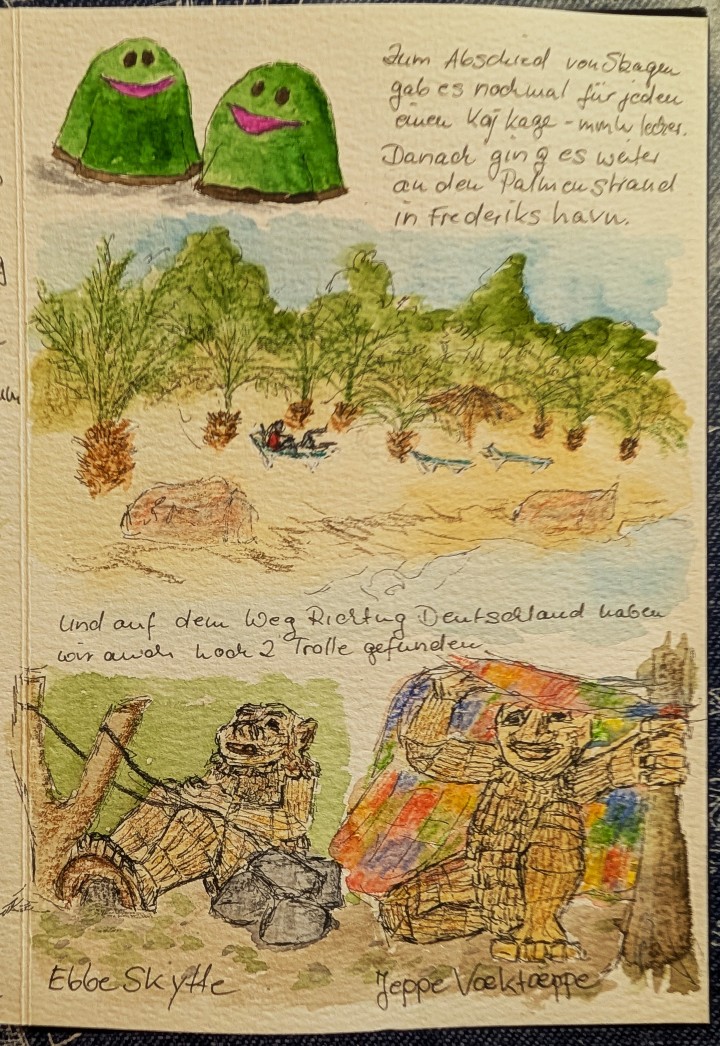 Zum Abschied von Skagen
gab es nochmal für jeden
einen Kaj Kage - mmh lecker.
Danach ging es weiter
an den Palmenstrand
in Frederikshavn.
Und auf dem Weg Richtug Deutschland haben
wir auch noch 2 Trolle gefunden.
Ebbe Skytte
Jeppe Væktæppe